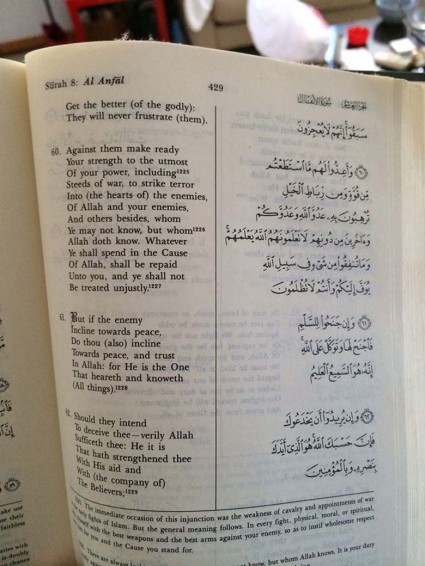 Sūrah 8: Al Anfāl
429
سُورَةُ الأَنْفَالِ
Get the better (of the godly):
They will never frustrate (them).
60. Against them make ready
Your strength to the utmost
Of your power, including¹²²⁵
Steeds of war, to strike terror
Into (the hearts of) the enemies,
Of Allah and your enemies,
And others besides, whom
Ye may not know, but whom¹²²⁶
Allah doth know. Whatever
Ye shall spend in the Cause
Of Allah, shall be repaid
Unto you, and ye shall not
Be treated unjustly.¹²²⁷
61. But if the enemy
Incline towards peace,
Do thou (also) incline
Towards peace, and trust
In Allah: for He is the One
That heareth and knoweth
(All things).¹²²⁸
62. Should they intend
To deceive thee—verily Allah
Sufficeth thee: He it is
That hath strengthened thee
With His aid and
With (the company of)
The Believers;¹²²⁹
سَبَقُوٓا۟ إِنَّهُمْ لَا يُعْجِزُونَ
٦٠ وَأَعِدُّوا۟ لَهُم مَّا ٱسْتَطَعْتُم
مِّن قُوَّةٍ وَمِن رِّبَاطِ ٱلْخَيْلِ
تُرْهِبُونَ بِهِۦ عَدُوَّ ٱللَّهِ وَعَدُوَّكُمْ
وَءَاخَرِينَ مِن دُونِهِمْ لَا تَعْلَمُونَهُمُ ٱللَّهُ يَعْلَمُهُمْ
وَمَا تُنفِقُوا۟ مِن شَىْءٍ فِى سَبِيلِ ٱللَّهِ
يُوَفَّ إِلَيْكُمْ وَأَنتُمْ لَا تُظْلَمُونَ
٦١ وَإِن جَنَحُوا۟ لِلسَّلْمِ
فَٱجْنَحْ لَهَا وَتَوَكَّلْ عَلَى ٱللَّهِ
إِنَّهُۥ هُوَ ٱلسَّمِيعُ ٱلْعَلِيمُ
٦٢ وَإِن يُرِيدُوٓا۟ أَن يَخْدَعُوكَ
فَإِنَّ حَسْبَكَ ٱللَّهُ هُوَ ٱلَّذِىٓ أَيَّدَكَ
بِنَصْرِهِۦ وَبِٱلْمُؤْمِنِينَ
The immediate occasion of this injunction was the weakness of cavalry and appointments of war
fights of Islam. But the general meaning follows. In every fight, physical, moral, or spiritual,
with the best weapons and the best arms against your enemy, so as to instil wholesome respect
you and the Cause you stand for.
There are always know, but whom Allah knows. It is your duty